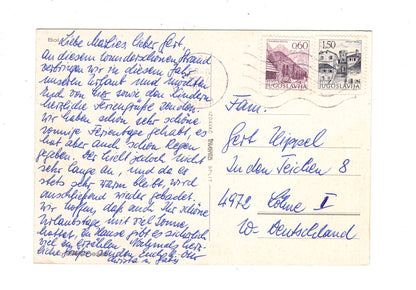 Bol
Liebe Marlies lieber Gert.
An diesem wunderschönen Strand
verbringen wir in diesem Jahr
unseren Urlaub und möchten
Euch von hier sowie den Kindern
herzliche Feriengrüße senden.
Wir haben schon sehr schöne
sonnige Ferientage gehabt, es
hat aber auch schon Regen
gegeben. Der hielt jedoch nicht
sehr lange an, und da es
stets sehr warm bleibt, wird
anschließend wieder gebadet.
Wir hoffen, daß auch Ihr schöne
Urlaubstage mit viel Sonne
hattet, zu Hause gibt es sicherlich
viel zu erzählen. Nochmals herz-
liche Grüße senden Euch
u. Gaby
0,60
JUGOSLAVIJA
1,50
JUGOSLAVIJA
Fam.
Gert Hippel
In den Teichen 8
4972 Löhne I
W. Deutschland